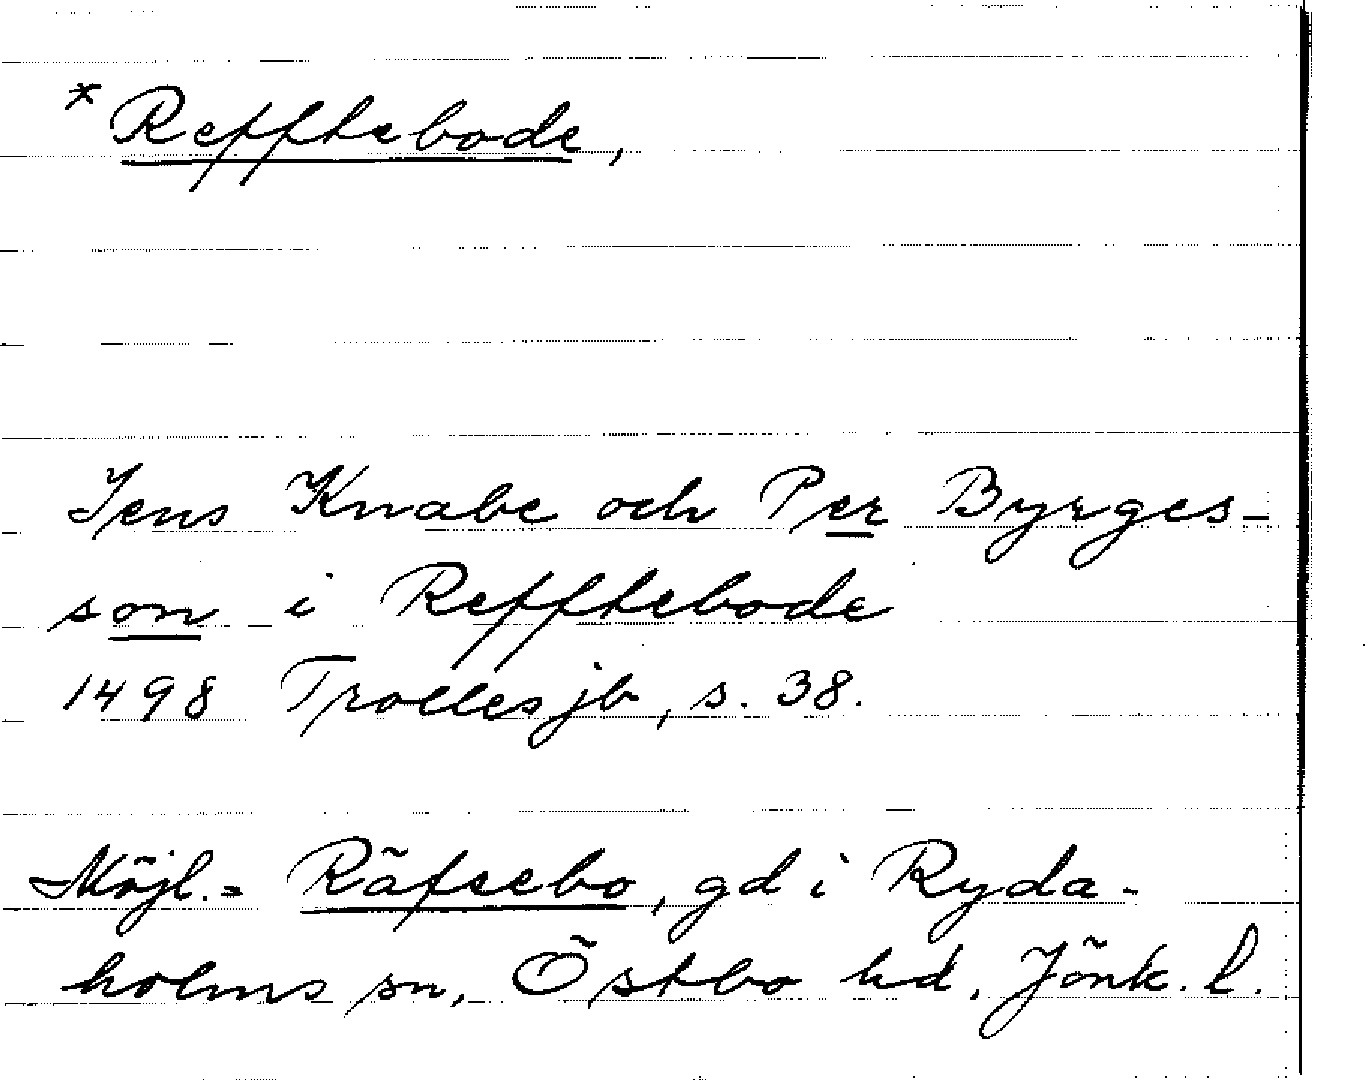 * Refftebode,
Jens Knabe och Per Byrges-
son i Refftebode
1498 Trolles jb, s. 38.
Möjl. = Räfsebo, gd i Ryda-
holms sn, Östbo hd, Jönk. l.